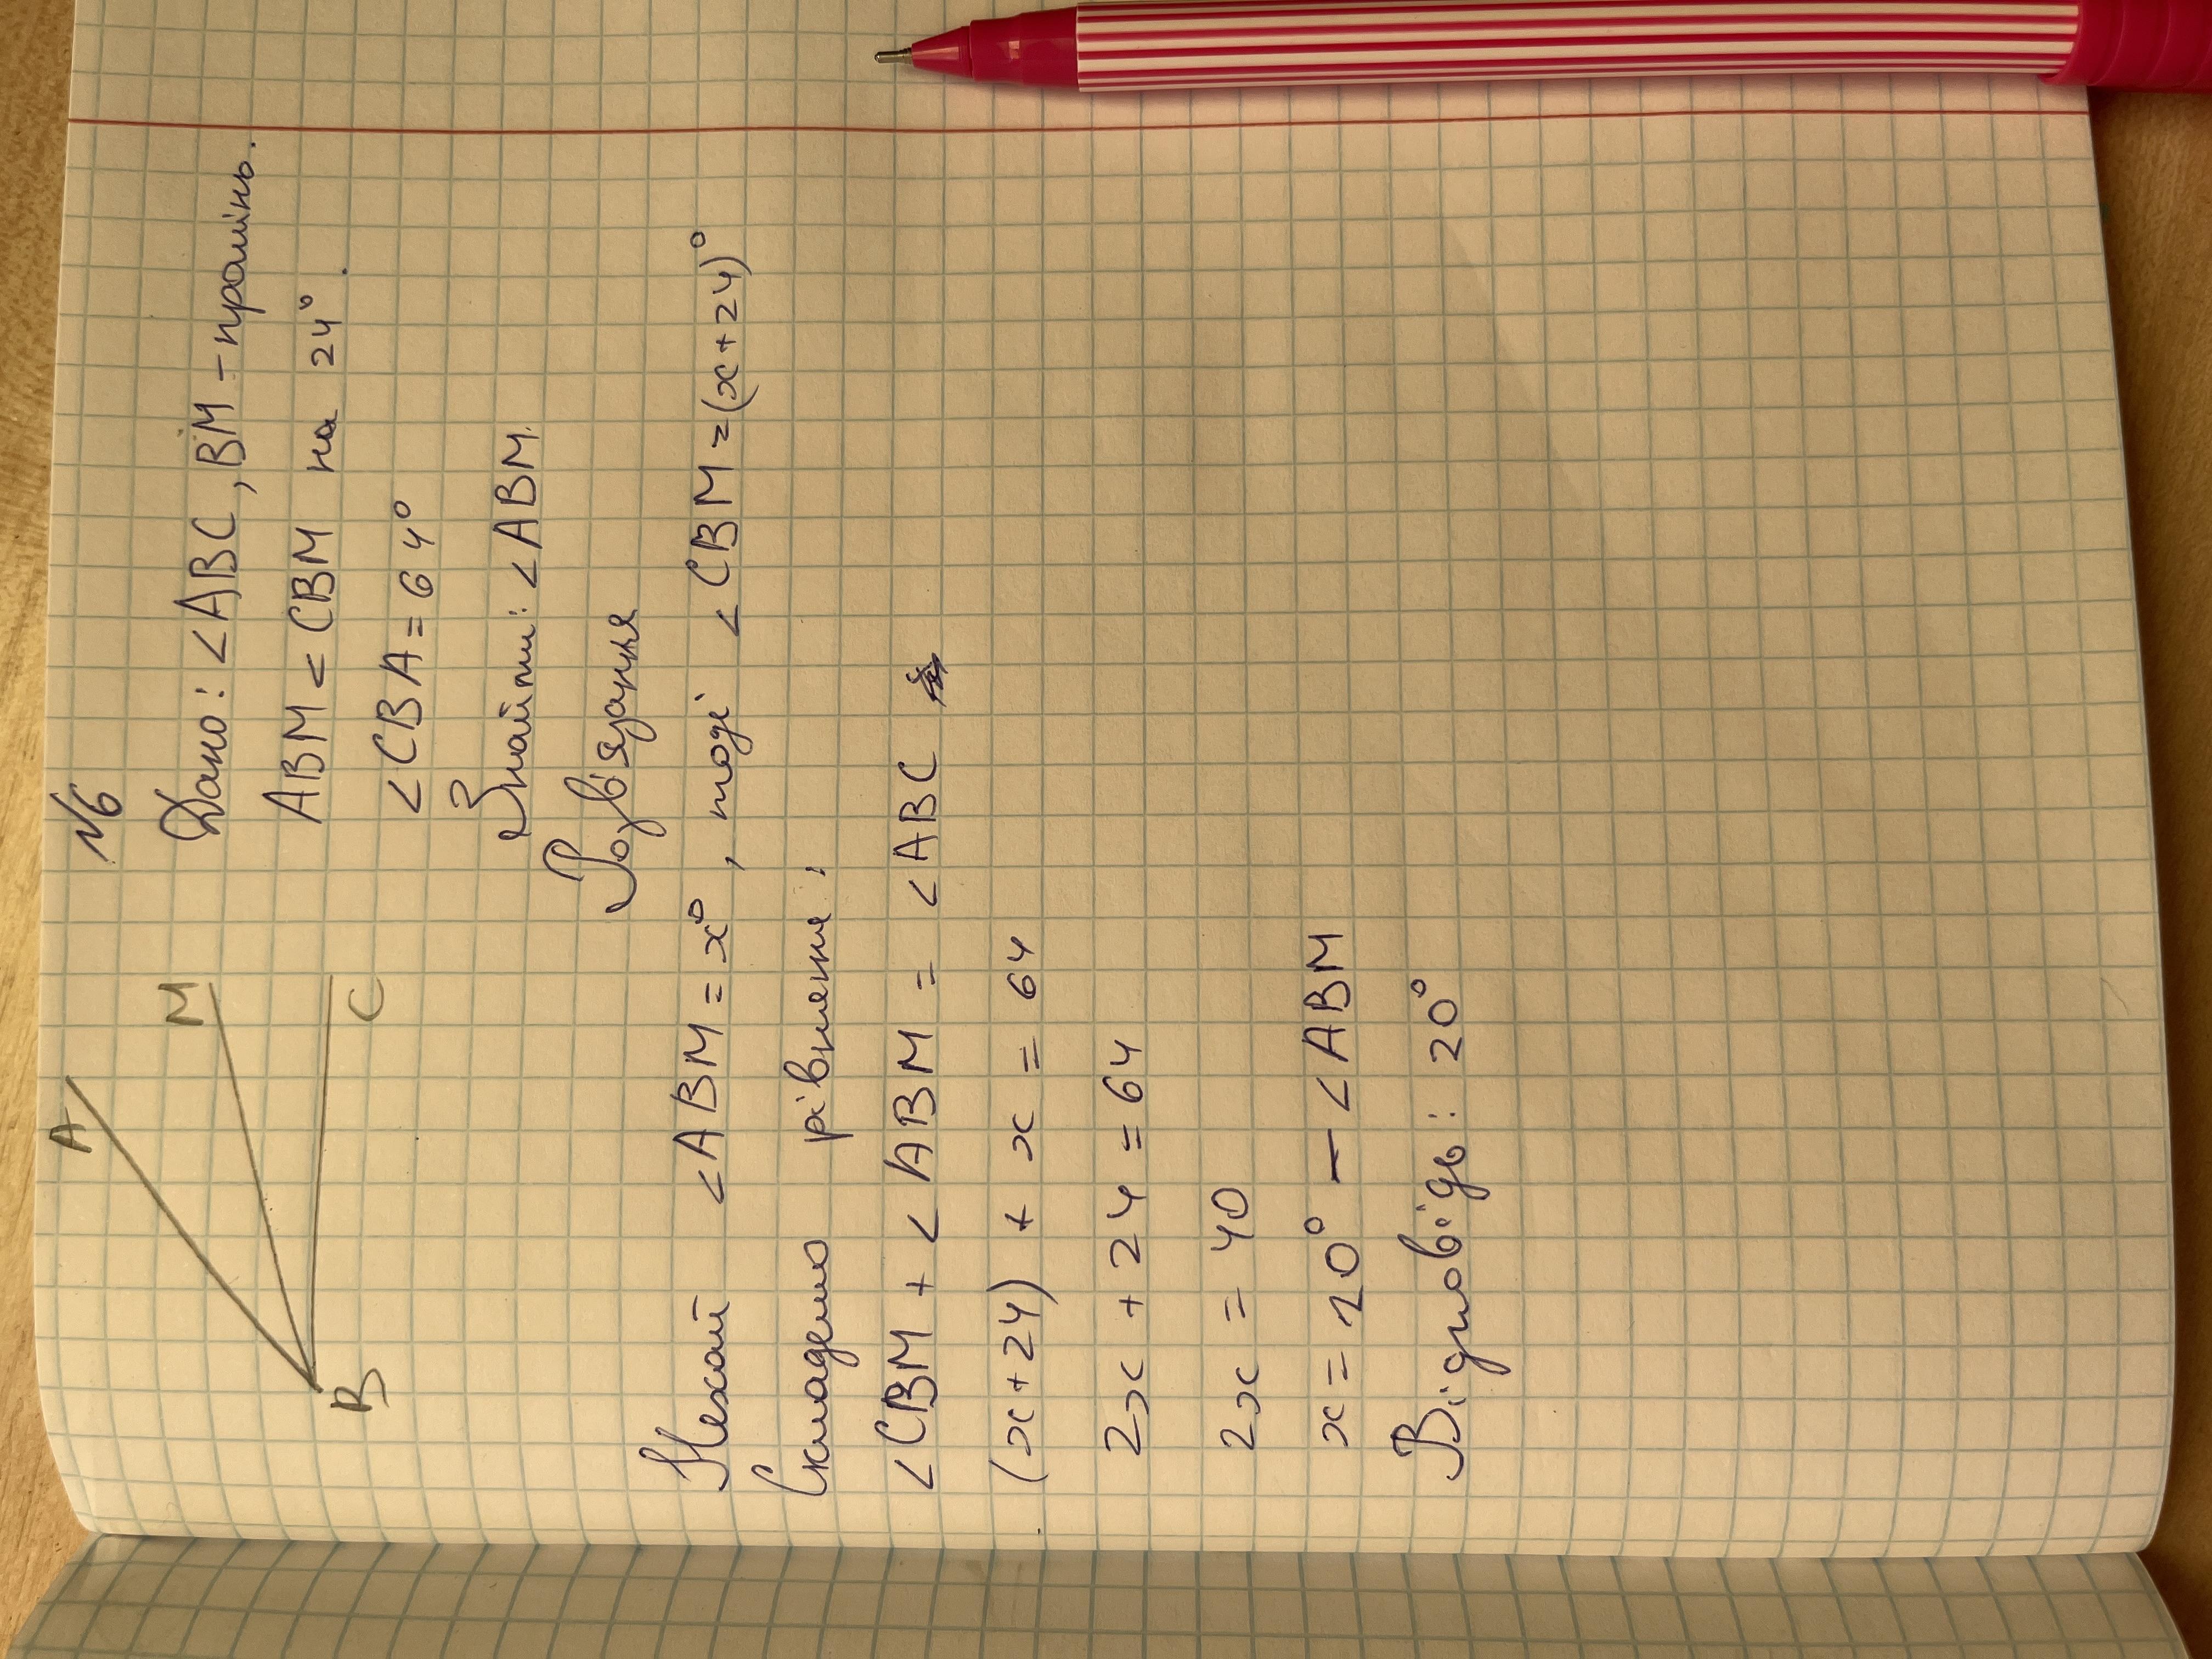 №6
A
M
B
C
Дано: <ABC, BM – промінь.
ABM < CBM на 24°.
<CBA = 64°
Знайти: <ABM.
Розв'язання
Нехай <ABM = x°, тоді <CBM = (x+24)°
Складемо рівняння:
<CBM + <ABM = <ABC
(x+24) + x = 64
2x + 24 = 64
2x = 40
x = 20° – <ABM
Відповідь: 20°